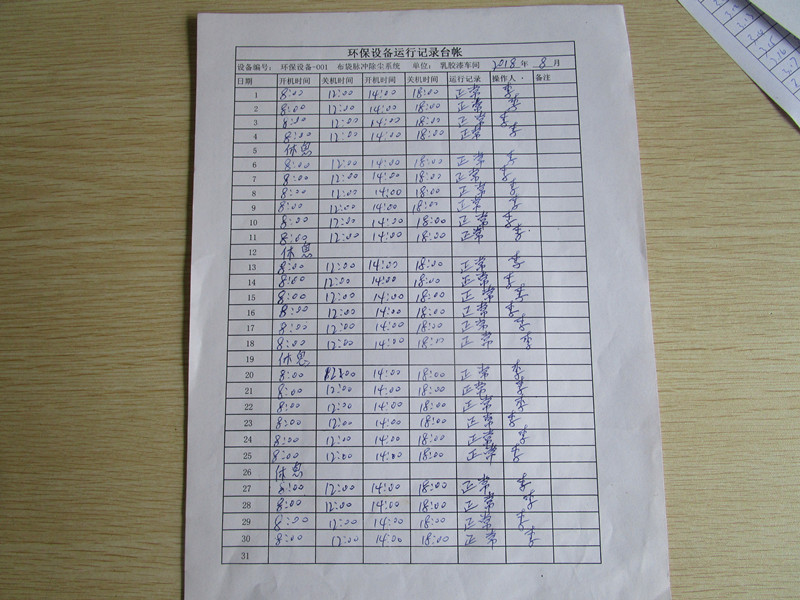 环保设备运行记录台帐
设备编号： 环保设备-001 布袋脉冲除尘系统 单位： 乳胶漆车间 2018 年 8 月
日期 开机时间 关机时间 开机时间 关机时间 运行记录 操作人 备注
1 8:00 12:00 14:00 18:00 正常 李
2 8:00 12:00 14:00 18:00 正常 李
3 8:00 12:00 14:00 18:00 正常 李
4 8:00 12:00 14:00 18:00 正常 李
5 休息
6 8:00 12:00 14:00 18:00 正常 李
7 8:00 12:00 14:00 18:00 正常 李
8 8:00 12:00 14:00 18:00 正常 李
9 8:00 12:00 14:00 18:00 正常 李
10 8:00 12:00 14:00 18:00 正常 李
11 8:00 12:00 14:00 18:00 正常 李
12 休息
13 8:00 12:00 14:00 18:00 正常 李
14 8:00 12:00 14:00 18:00 正常 李
15 8:00 12:00 14:00 18:00 正常 李
16 8:00 12:00 14:00 18:00 正常 李
17 8:00 12:00 14:00 18:00 正常 李
18 8:00 12:00 14:00 18:00 正常 李
19 休息
20 8:00 12:00 14:00 18:00 正常 李
21 8:00 12:00 14:00 18:00 正常 李
22 8:00 12:00 14:00 18:00 正常 李
23 8:00 12:00 14:00 18:00 正常 李
24 8:00 12:00 14:00 18:00 正常 李
25 8:00 12:00 14:00 18:00 正常 李
26 休息
27 8:00 12:00 14:00 18:00 正常 李
28 8:00 12:00 14:00 18:00 正常 李
29 8:00 12:00 14:00 18:00 正常 李
30 8:00 12:00 14:00 18:00 正常 李
31